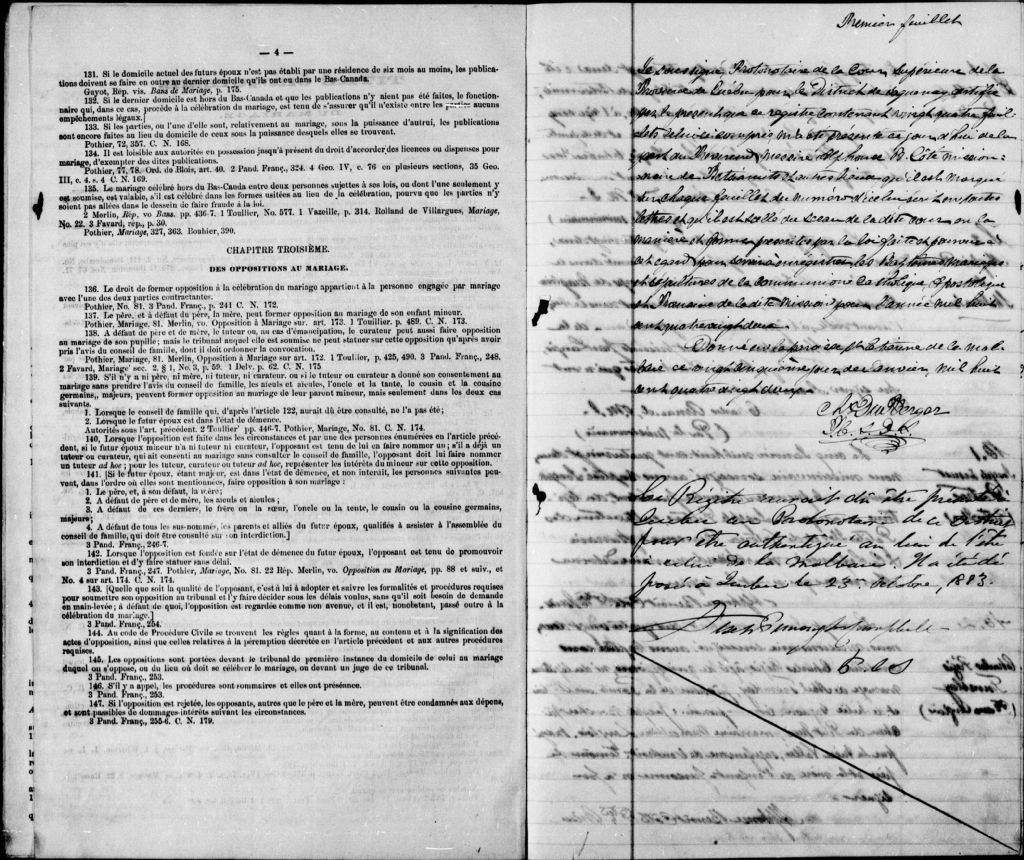 — 4 —
131. Si le domicile actuel des futurs époux n'est pas établi par une résidence de six mois au moins, les publica-
tions doivent se faire en outre au dernier domicile qu'ils ont eu dans le Bas-Canada.
Guyot, Rép. vis. Bans de Mariage, p. 175.
132. Si le dernier domicile est hors du Bas-Canada et que les publications n'y aient pas été faites, le fonction-
naire qui, dans ce cas, procède à la célébration du mariage, est tenu de s'assurer qu'il n'existe entre les parties aucuns
empêchements légaux.]
133. Si les parties, ou l'une d'elle sont, relativement au mariage, sous la puissance d'autrui, les publications
sont encore faites au lieu du domicile de ceux sous la puissance desquels elles se trouvent.
Pothier, 72, 357. C. N. 168.
134. Il est loisible aux autorités en possession jusqu'à présent du droit d'accorder des licences ou dispenses pour
mariage, d'exempter des dites publications.
Pothier, 77, 78. Ord. de Blois, art. 40. 2 Pand. Franç., 324. 4 Geo. IV, c. 76 en plusieurs sections, 35 Geo.
III, c. 4. s. 4 C. N. 169.
135. Le mariage célébré hors du Bas-Canda entre deux personnes sujettes à ses lois, ou dont l'une seulement y
est soumise, est valable, s'il est célébré dans les formes usitées au lieu de la célébration, pourvu que les parties n'y
soient pas allées dans le dessein de faire fraude à la loi.
2 Merlin, Rép. vo Bans. pp. 436-7. 1 Toullier, No. 577. 1 Vazeille, p. 314. Rolland de Villargues, Mariage,
No. 22. 3 Favard, rép., p. 30.
Pothier, Mariage, 327, 363. Bouhier, 390.
CHAPITRE TROISIÈME.
DES OPPOSITIONS AU MARIAGE.
136. Le droit de former opposition à la célébration du mariage appartient à la personne engagée par mariage
avec l'une des deux parties contractantes.
Pothier, No. 81. 3 Pand. Franç., p. 241 C. N. 172.
137. Le père, et à défaut du père, la mère, peut former opposition au mariage de son enfant mineur.
Pothier, Mariage, 81. Merlin, vo. Opposition à Mariage sur. art. 173. 1 Touillier. p. 489. C. N. 173.
138. A défaut de père et de mère, le tuteur ou, au cas d'émancipation, le curateur peut aussi faire opposition
au mariage de son pupille; mais le tribunal auquel elle est soumise ne peut statuer sur cette opposition qu'après avoir
pris l'avis du conseil de famille, dont il doit ordonner la convocation.
Pothier, Mariage, 81. Merlin, Opposition à Mariage sur art. 172. 1 Toullier, p. 425, 490. 3 Pand. Franç., 248.
2 Favard, Mariage' sec. 2, § 1, No. 3, p. 59. 1 Delv. p. 62. C. N. 175
139. S'il n'y a ni père, ni mère, ni tuteur, ni curateur, ou si le tuteur ou curateur a donné son consentement au
mariage sans prendre l'avis du conseil de famille, les aïeuls et aïeules, l'oncle et la tante, le cousin et la cousine
germains,, majeurs, peuvent former opposition au mariage de leur parent mineur, mais seulement dans les deux cas
suivants.
1. Lorsque le conseil de famille qui, d'après l'article 122, aurait dû être consulté, ne l'a pas été;
2. Lorsque le futur époux est dans l'état de démence.
Autorités sous l'art. précédent. 2 Touillier' pp. 446-7. Pothier, Mariage, No. 81. C. N. 174.
140. Lorsque l'opposition est faite dans les circonstances et par une des personnes énumérées en l'article précé-
dent, si le futur époux mineur n'a ni tuteur ni curateur, l'opposant est tenu de lui en faire nommer un; s'il a déjà un
tuteur ou curateur, qui ait consenti au mariage sans consulter le conseil de famille, l'opposant doit lui faire nommer
un tuteur ad hoc; pour les, tuteur, curateur ou tuteur ad hoc, représenter les intérêts du mineur sur cette opposition.
141. [Si le futur époux, étant majeur, est dans l'état de démence, et non interdit, les personnes suivantes peu-
vent, dans l'ordre où elles sont mentionnées, faire opposition à son mariage:
1. Le père, et, à son défaut, la mère;
2. A défaut de père et de mère, les aïeuls et aïeules;
3. A défaut de ces derniers, le frère ou la sœur, l'oncle ou la tante, le cousin ou la cousine germains,
majeurs;
4. A défaut de tous les sus-nommés, les parents et alliés du futur époux, qualifiés à assister à l'assemblée du
conseil de famille, qui doit être consulté sur son interdiction.]
3 Pand. Franç., 246-7.
142. Lorsque l'opposition est fondée sur l'état de démence du futur époux, l'opposant est tenu de promouvoir
son interdiction et d'y faire statuer sans délai.
3 Pand. Franç., 247. Pothier, Mariage, No. 81. 22 Rép. Merlin, vo. Opposition au Mariage, pp. 88 et suiv., et
No. 4 sur art. 174. C. N. 174.
143. [Quelque soit la qualité de l'opposant, c'est à lui à adopter et suivre les formalités et procédures requises
pour soumettre son opposition au tribunal et l'y faire décider sous les délais voulus, sans qu'il soit besoin de demande
en main-levée; à défaut de quoi, l'opposition est regardée comme non avenue, et il est, nonobstant, passé outre à la
célébration du mariage.]
3 Pand. Franç., 254.
144. Au code de Procédure Civile se trouvent les règles quant à la forme, au contenu et à la signification des
actes d'opposition, ainsi que celles relatives à la péremption décrétée en l'article précédent et aux autres procédures
requises.
145. Les oppositions sont portées devant le tribunal de première instance du domicile de celui au mariage
duquel on s'oppose, ou du lieu où doit se célébrer le mariage, ou devant un juge de ce tribunal.
3 Pand. Franç., 253.
146. S'il y a appel, les procédures sont sommaires et elles ont préséance.
3 Pand. Franç., 253.
147. Si l'opposition est rejetée, les opposants, autres que le père et la mère, peuvent être condamnés aux dépens,
et sont passibles de dommages-intérêts suivant les circonstances.
3 Pand. Franç., 255-6. C. N. 179.
Premier feuillet
Je soussigné, Protonotaire de la Cour Supérieure de la
Province de Québec pour le District de Saguenay certifie
par le présent que ce registre contenant vingt quatre feuil-
lets celui-ci compris m'a été présenté ce jour d'hui de la
part du Révérend Messire Alphonse B. Côté mission-
naire de Bethsiamits et autres lieux qu'il est marqué
sur chaque feuillet du numéro d'icelui en toutes
lettres et qu'il est scellé du sceau de la dite cour en la
manière et forme prescrites par la loi faite et pourvue à
cet égard pour servir à enregistrer les Baptêmes Mariages
et Sépultures de la communion catholique Apostolique
et Romaine de la dite Mission pour l'année mil huit
cent quatre vingt deux
Donné en la paroisse St Etienne de la Mal-
baie ce vingt cinquième jour de Janvier mil huit
cent quatre vingt deux
P. C. S.
Ce Registre aurait dû être présenté à
Québec au Protonotaire de ce District
pour être authentiqué au lieu de l'être
à celui de la Malbaie. Il a été dé
posé à Québec le 23 Octobre, 1883.
P C S